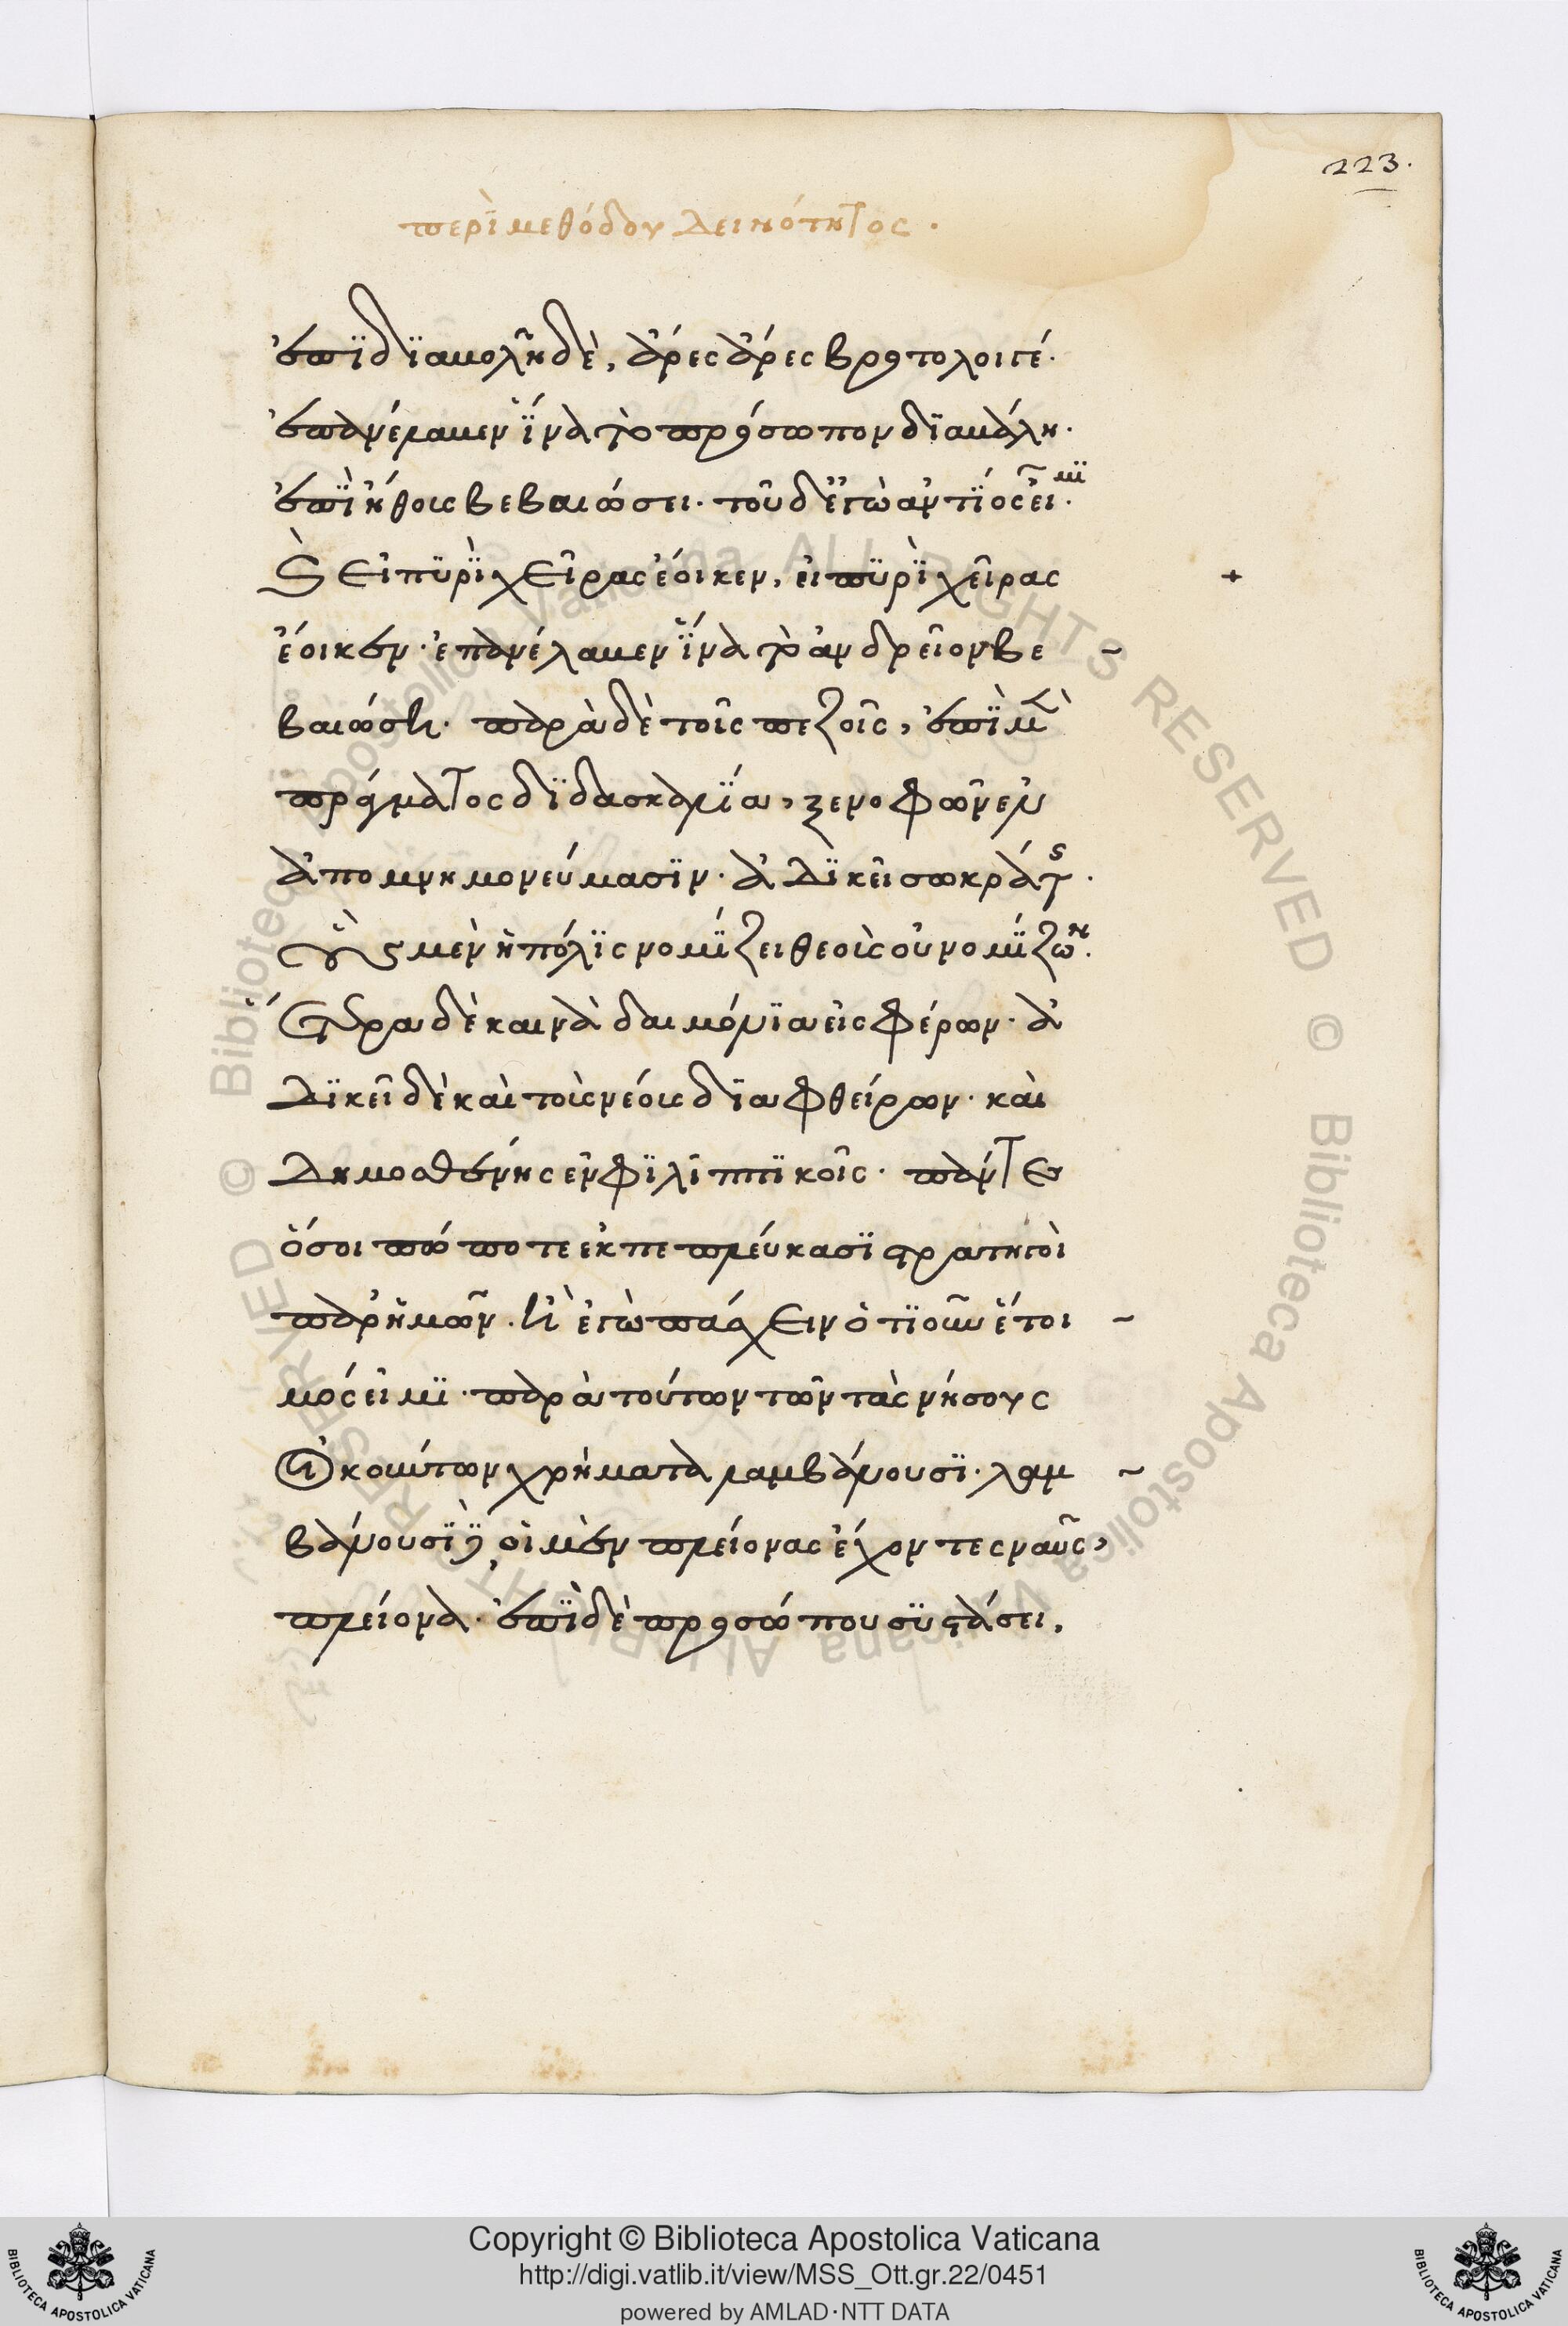 223.
περὶ μεθόδου δεινότητος.
ἐπϊ δϊαβολῆ δὲ, ἄρες ἄρες βροτολοιγέ.
ἐπανέλαβεν ἵνα τὸ πρόσωπον δϊαβάλη.
ἐπὶ ἤθους βεβαιώσει. τοῦ δ' ἐγὼ ἀντίος εἶμϊ.
καὶ εἰ πυρὶ χεῖρας ἔοικεν, εἰ πυρὶ χεῖρας
ἔοικεν. ἐπανέλαβεν ἵνα τὸ ἀνδρεῖον βε
βαιώση. παρὰ δὲ τοῖς πεζοῖς, ἐπὶ μὲν
πράγματος δϊδασκαλία, ξενοφῶν ἐν
ἀπομνημονεύμασϊν. ἀδϊκεῖ σωκράτης.
οὓς μὲν ἡ πόλϊς νομίζει θεοὺς οὐ νομίζων.
ἕτερα δὲ καινὰ δαιμόνϊα εἰσφέρων. ἀ
δϊκεῖ δὲ καὶ τοὺς νέους δϊαφθείρων. καὶ
δημοσθένης ἐν φϊλιππϊκοῖς. πάντες
ὅσοι πώποτε ἐκπεπλεύκασϊ στρατηγοὶ
παρ' ἡμῶν. ἢ ἐγὼ πάσχειν ὁτϊοῦν ἕτοι
μός εἰμϊ. παρὰ τούτων τῶν τὰς νήσους
οἰκούντων χρήματα λαμβάνουσϊ. λαμ
βάνουσϊ δὲ, οἱ μὲν πλείονας ἔχοντες ναῦς,
πλείονα. ἐπὶ δὲ προσώπου συστάσει,
Copyright © Biblioteca Apostolica Vaticana
http://digi.vatlib.it/view/MSS_Ott.gr.22/0451
powered by AMLAD·NTT DATA